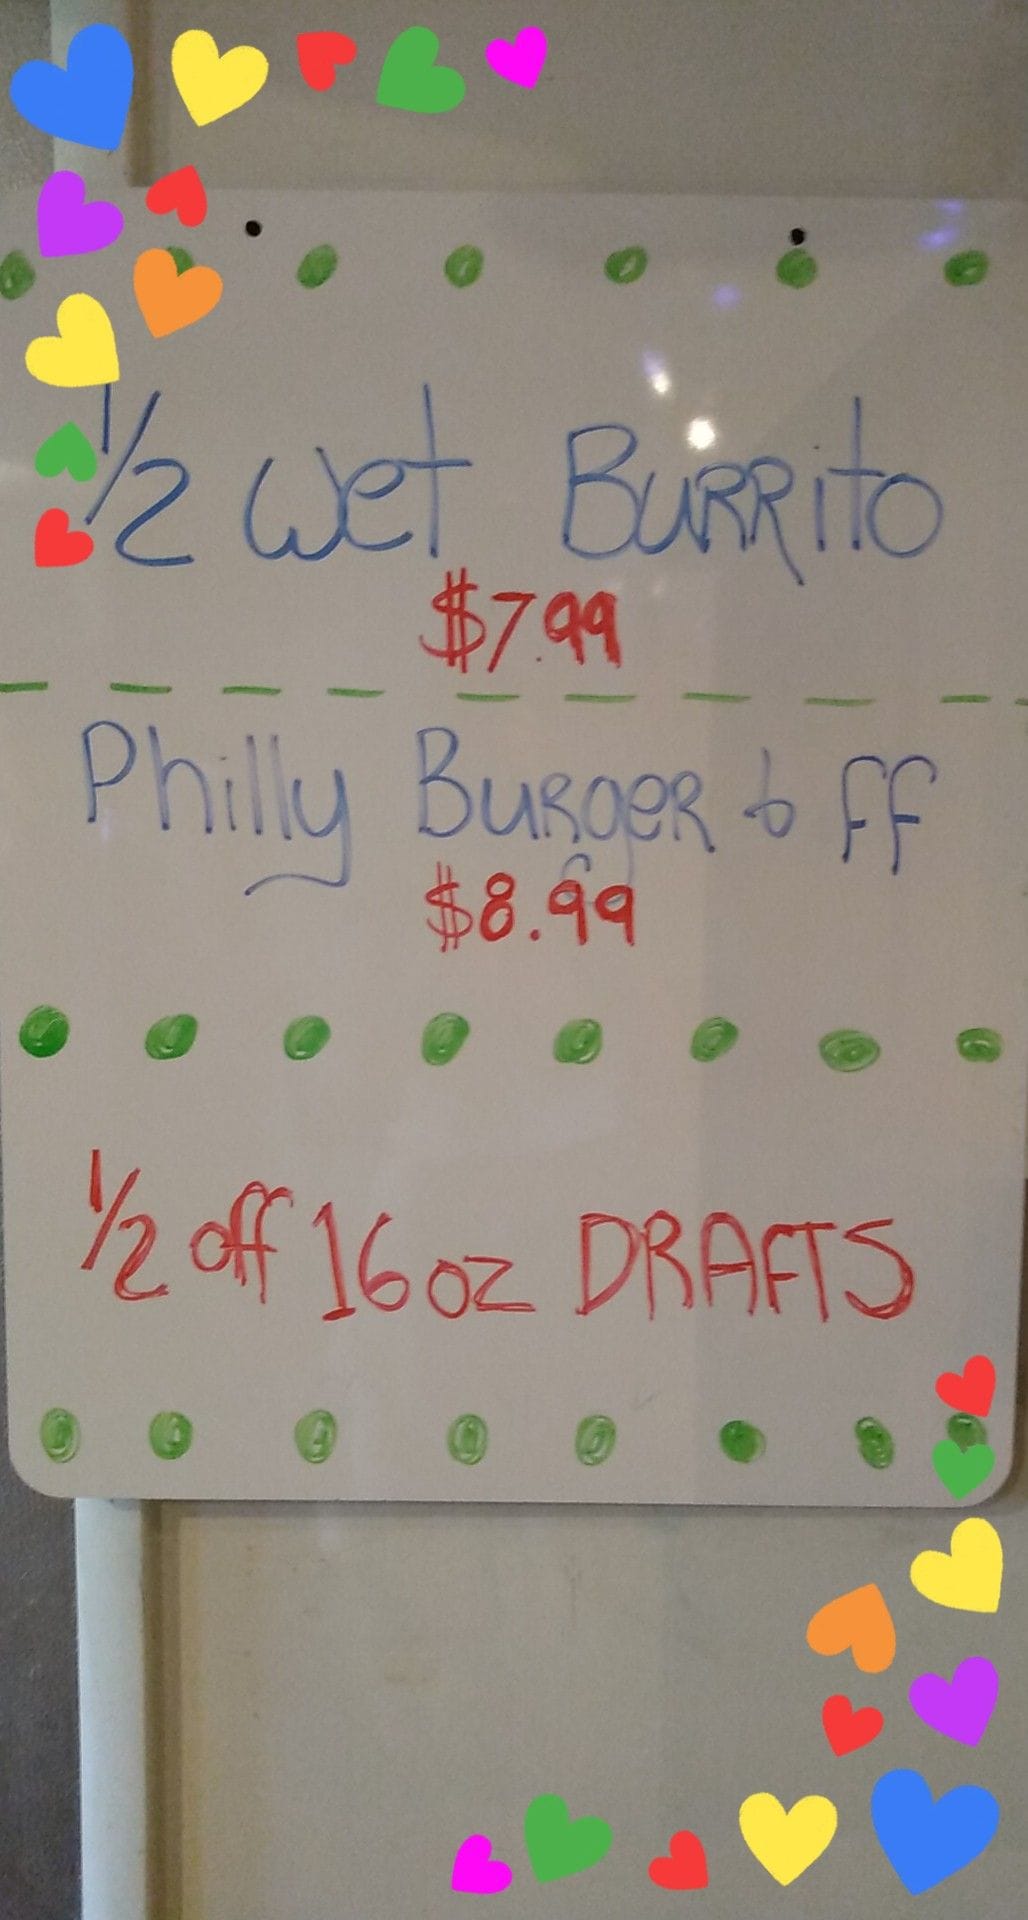 1/2 Wet Burrito
$7.99
Philly Burger & FF
$8.99
1/2 off 16 oz DRAFTS